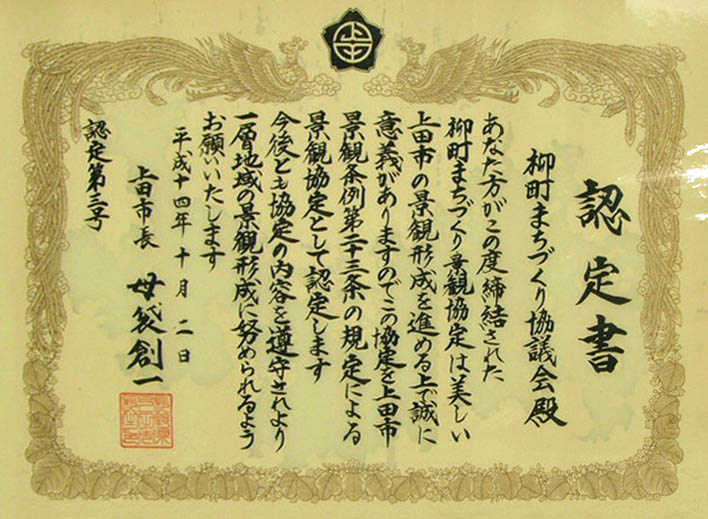 認定書
柳町まちづくり協議会殿
あなた方がこの度締結された
柳町まちづくり景観協定は美しい
上田市の景観形成を進める上で誠に
意義がありますのでこの協定を上田市
景観条例第二十三条の規定による
景観協定として認定します
今後とも協定の内容を遵守されより
一層地域の景観形成に努められるよう
お願いいたします
平成十四年十月二日
上田市長 母袋創一
認定第三号